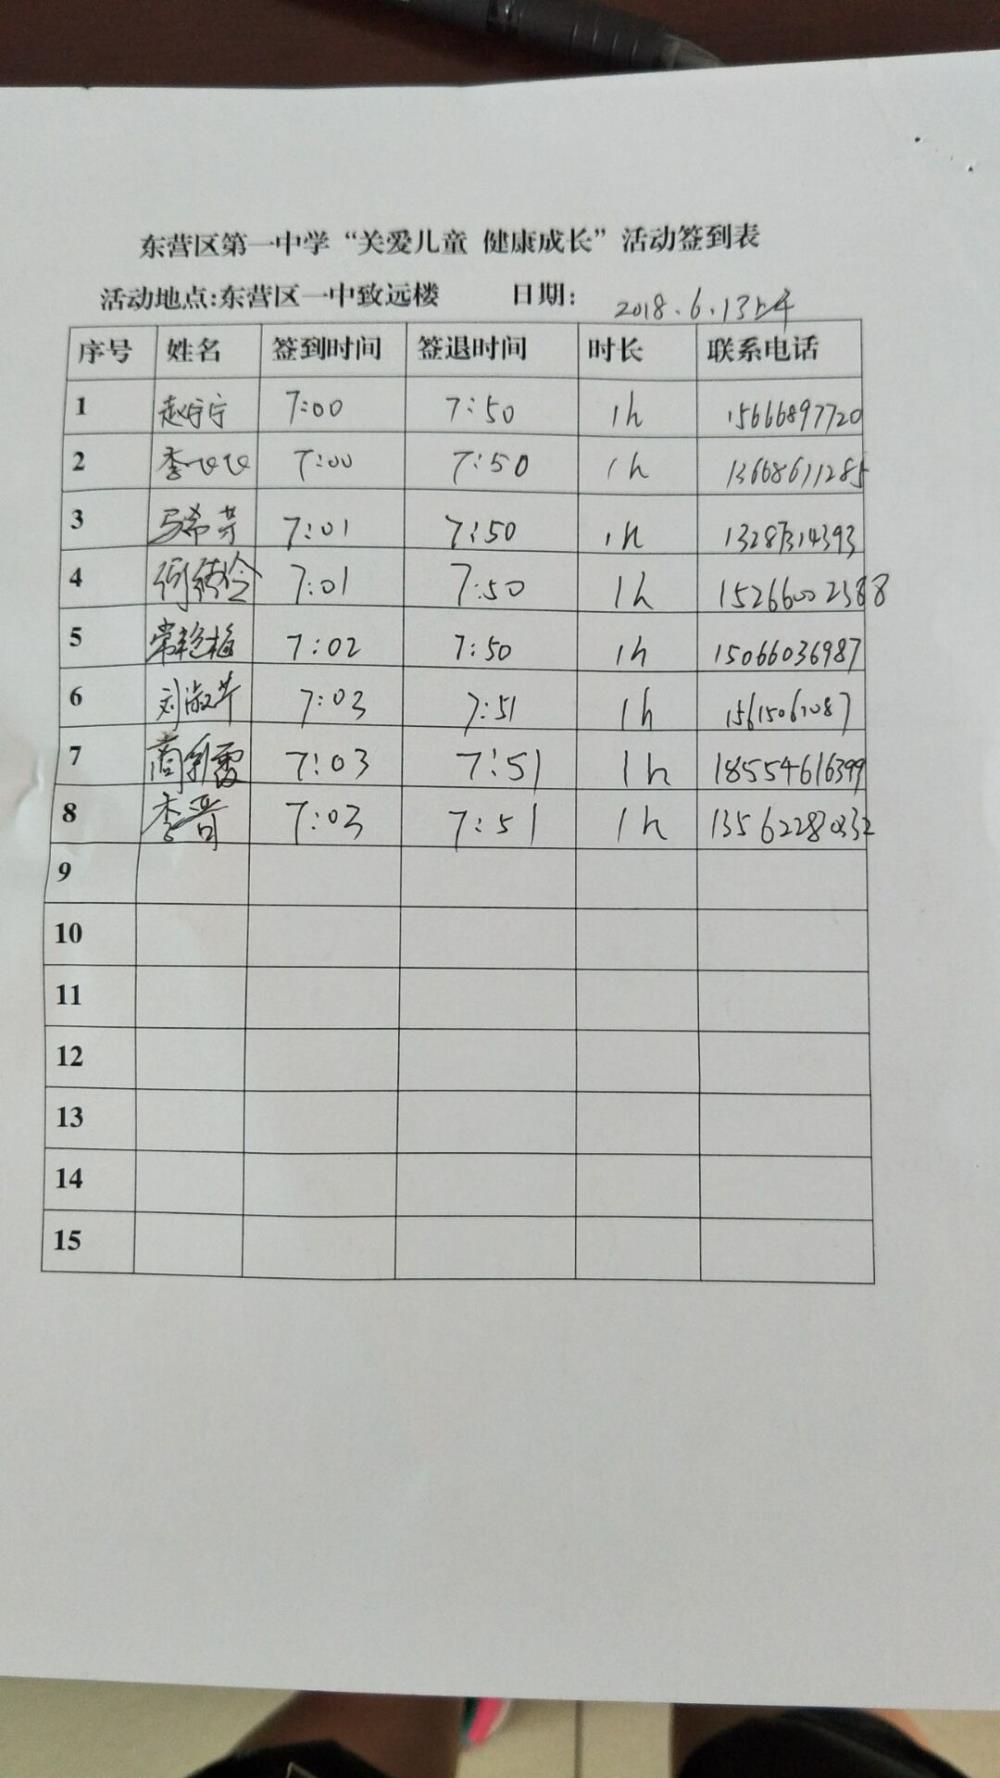 东营区第一中学“关爱儿童 健康成长”活动签到表
活动地点:东营区一中致远楼 日期: 2018.6.13上午
序号 姓名 签到时间 签退时间 时长 联系电话
1 赵宁宁 7:00 7:50 1h 15666897720
2 李飞飞 7:00 7:50 1h 13668611285
3 马希芳 7:01 7:50 1h 13287314393
4 7:01 7:50 1h 15266002388
5 常艳梅 7:02 7:50 1h 15066036987
6 刘淑芹 7:03 7:51 1h 15615061087
7 7:03 7:51 1h 18554616399
8 7:03 7:51 1h 13562280332
9
10
11
12
13
14
15